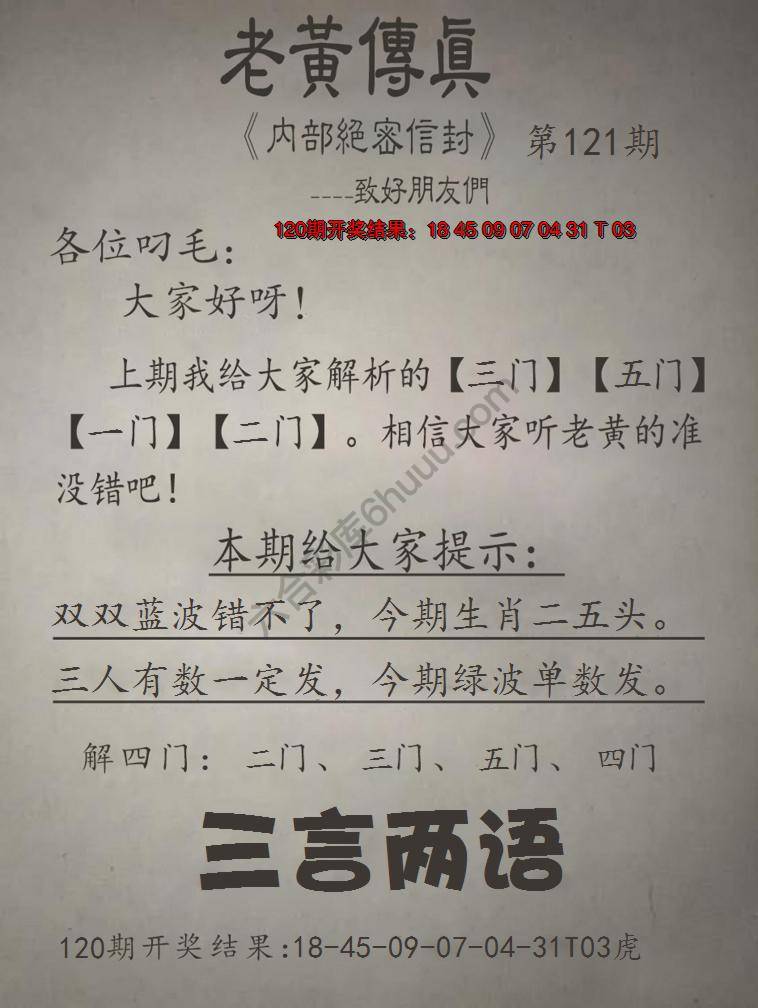 老黃傳眞
《内部絕密信封》 第121期
----致好朋友們
120期开奖结果：18 45 09 07 04 31 T 03
各位叼毛：
大家好呀！
上期我给大家解析的【三门】【五门】
【一门】【二门】。相信大家听老黄的准
没错吧！
本期给大家提示：
双双蓝波错不了，今期生肖二五头。
三人有数一定发，今期绿波单数发。
解四门：二门、三门、五门、四门
三言两语
120期开奖结果:18-45-09-07-04-31T03虎
六合彩库6huuu.com